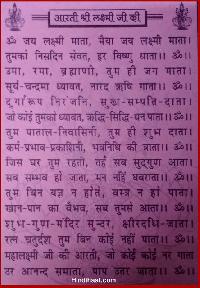 आरती श्री लक्ष्मी जी की
ॐ जय लक्ष्मी माता, मैया जय लक्ष्मी माता।
तुमको निसदिन सेवत, हर विष्णु धाता।।ॐ।।
उमा, रमा, ब्रह्माणी, तुम ही जग माता।
सूर्य-चन्द्रमा ध्यावत, नारद ऋषि गाता।।ॐ।।
दुर्गारूप निरंजनि, सुख-सम्पति-दाता।
जो कोई तुमको ध्यावत, ऋद्धि-सिद्धि-धन पाता।।ॐ।।
तुम पाताल-निवासिनी, तुम ही शुभ दाता।
कर्म-प्रभाव-प्रकाशिनी, भवनिधि की त्राता।।ॐ।।
जिस घर तुम रहती, तहँ सब सद्गुण आता।
सब सम्भव हो जाता, मन नहिं घबराता।।ॐ।।
तुम बिन यज्ञ न होते, वस्त्र न हो पाता।
खान-पान का वैभव, सब तुमसे आता।।ॐ।।
शुभ-गुण-मंदिर सुन्दर, क्षीरदधि-जाता।
रत्न चतुर्दश तुम बिन कोई नहीं पाता।।ॐ।।
महालक्ष्मी जी की आरती, जो कोई नर गाता
उर आनन्द समाता, पाप उतर जाता।।ॐ।।
Hindihaat.com